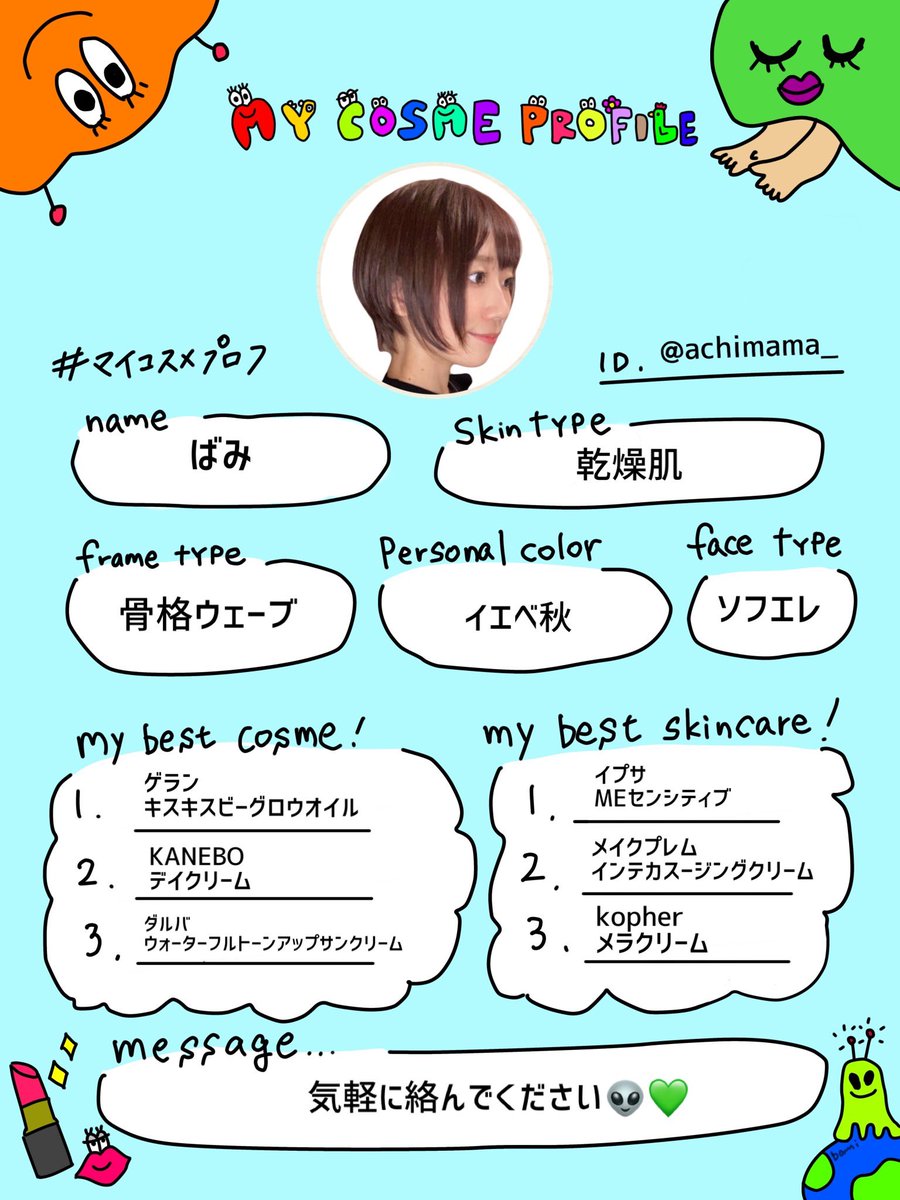 MY COSME PROFILE
#マイコスメプロフ
ID. @achimama_
name
ばみ
Skin type
乾燥肌
frame type
骨格ウェーブ
Personal color
イエベ秋
face type
ソフエレ
my best cosme!
1. ゲラン
キスキスビーグロウオイル
2. KANEBO
デイクリーム
3. ダルバ
ウォーターフルトーンアップサンクリーム
my best skincare!
1. イプサ
MEセンシティブ
2. メイクプレム
インテカスージングクリーム
3. kopher
メラクリーム
message...
気軽に絡んでください👽💚
bami